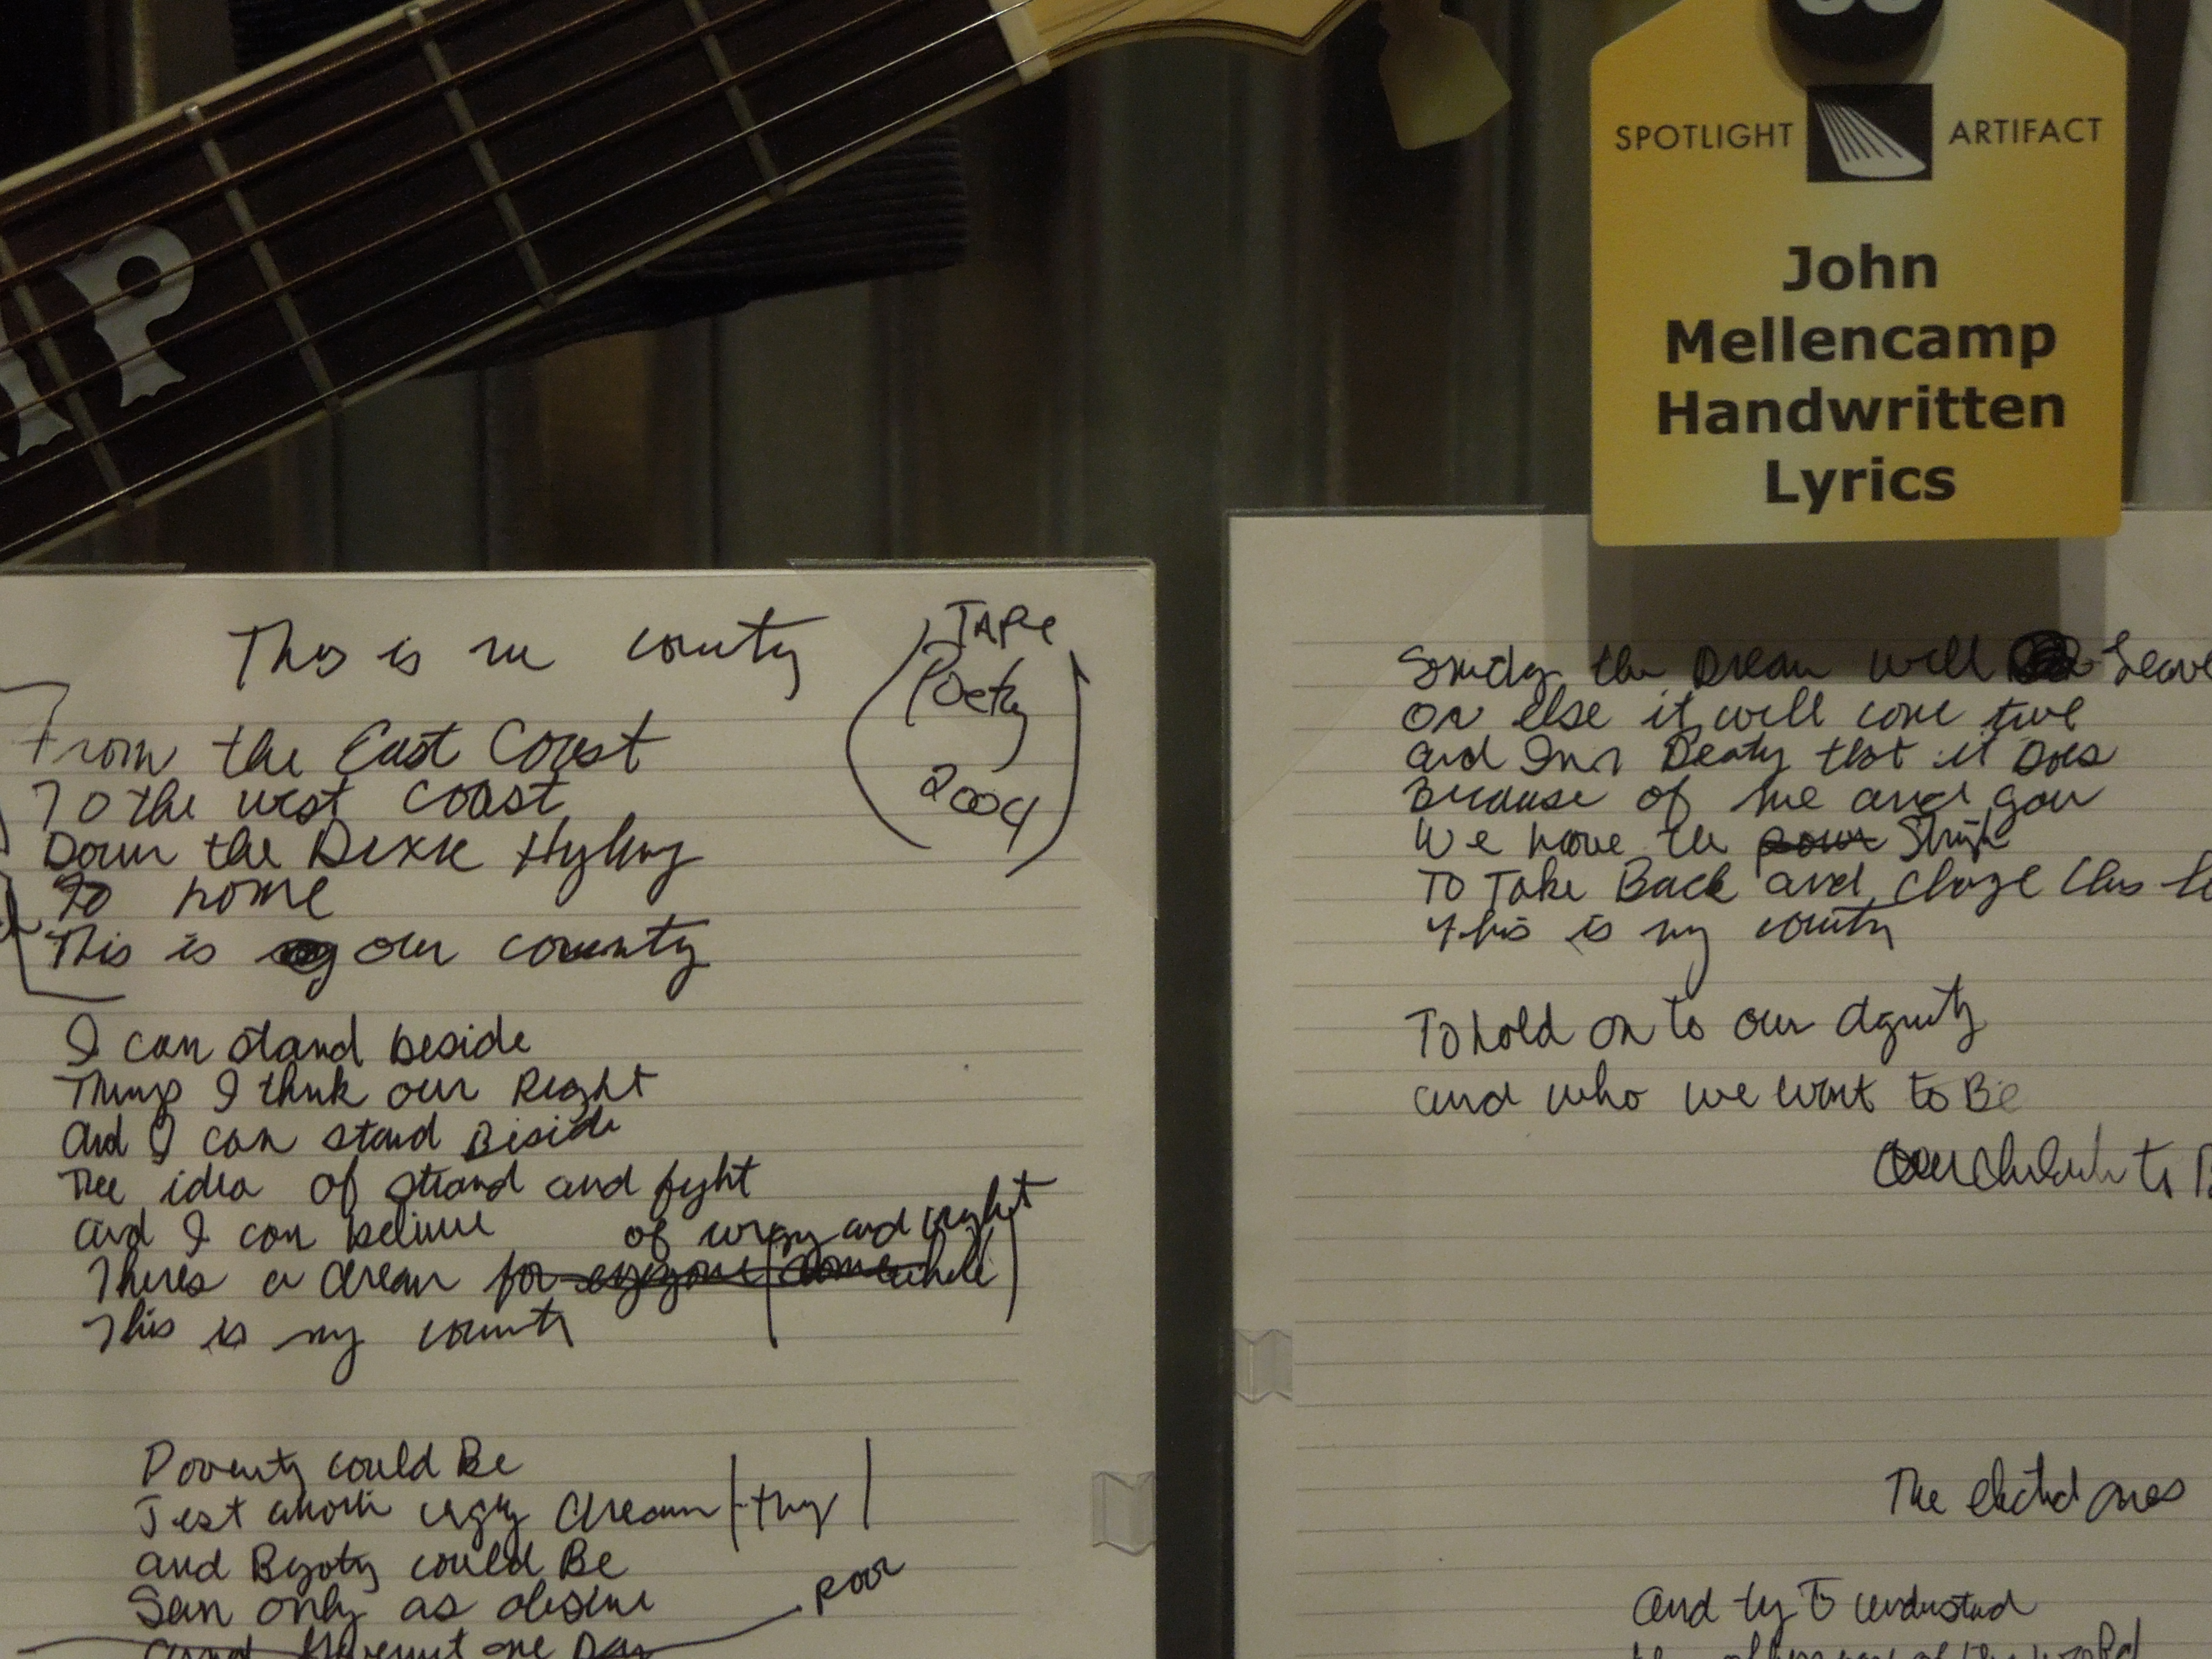 P
SPOTLIGHT ARTIFACT
John
Mellencamp
Handwritten
Lyrics
This is county
TAPe
Poety
2004
From the East Coast
To the west coast
Down the Dixie
To home
This is our county
I can stand beside
I think our Right
and I can stand Beside
The idea of stand and fight
and I can believe
of wrong and right
Theres a dream for
This is my county
Poverty could Be
Jest ugly dream
and could Be
Seen only as
poor
and one Day
the Dream will Leave
or else it will come true
and that it Does
Because of me and you
We have the
To Take Back and this
This is my county
To hold on to our dignity
and who we want to Be
to
The elected ones
and try To understand
of the world